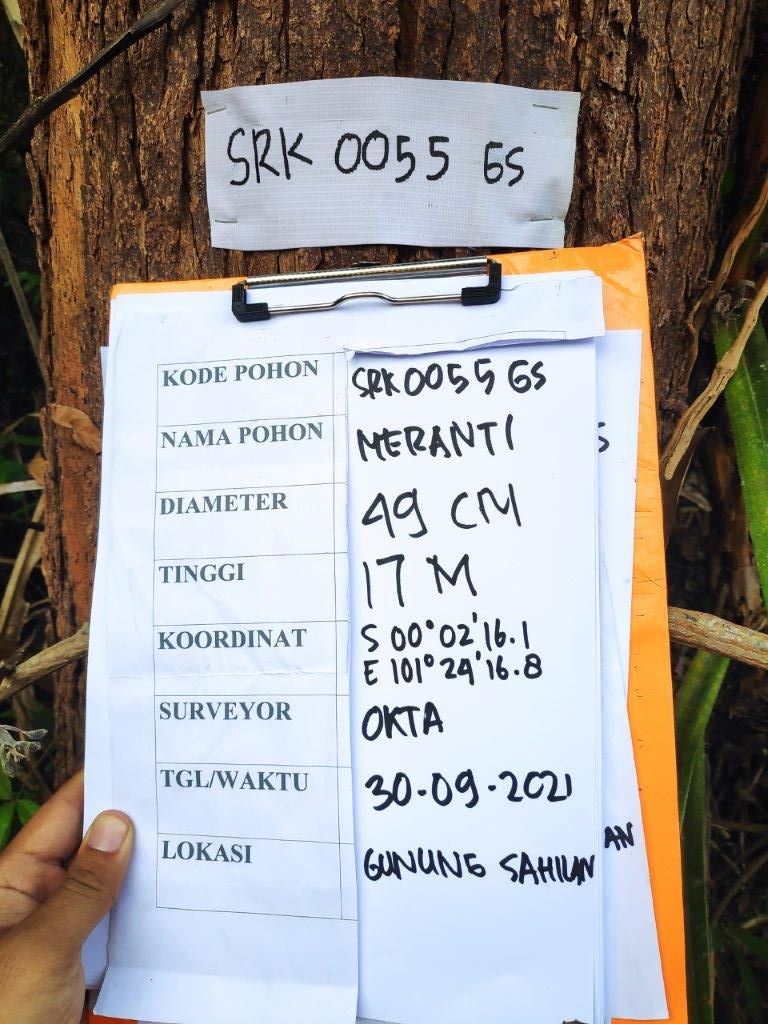 SRK 0055 GS
KODE POHON SRK0055 GS
NAMA POHON MERANTI
DIAMETER 49 CM
TINGGI 17 M
KOORDINAT S 00°02'16.1
E 101°24'16.8
SURVEYOR OKTA
TGL/WAKTU 30-09-2021
LOKASI GUNUNG SAHILAN
S
AN